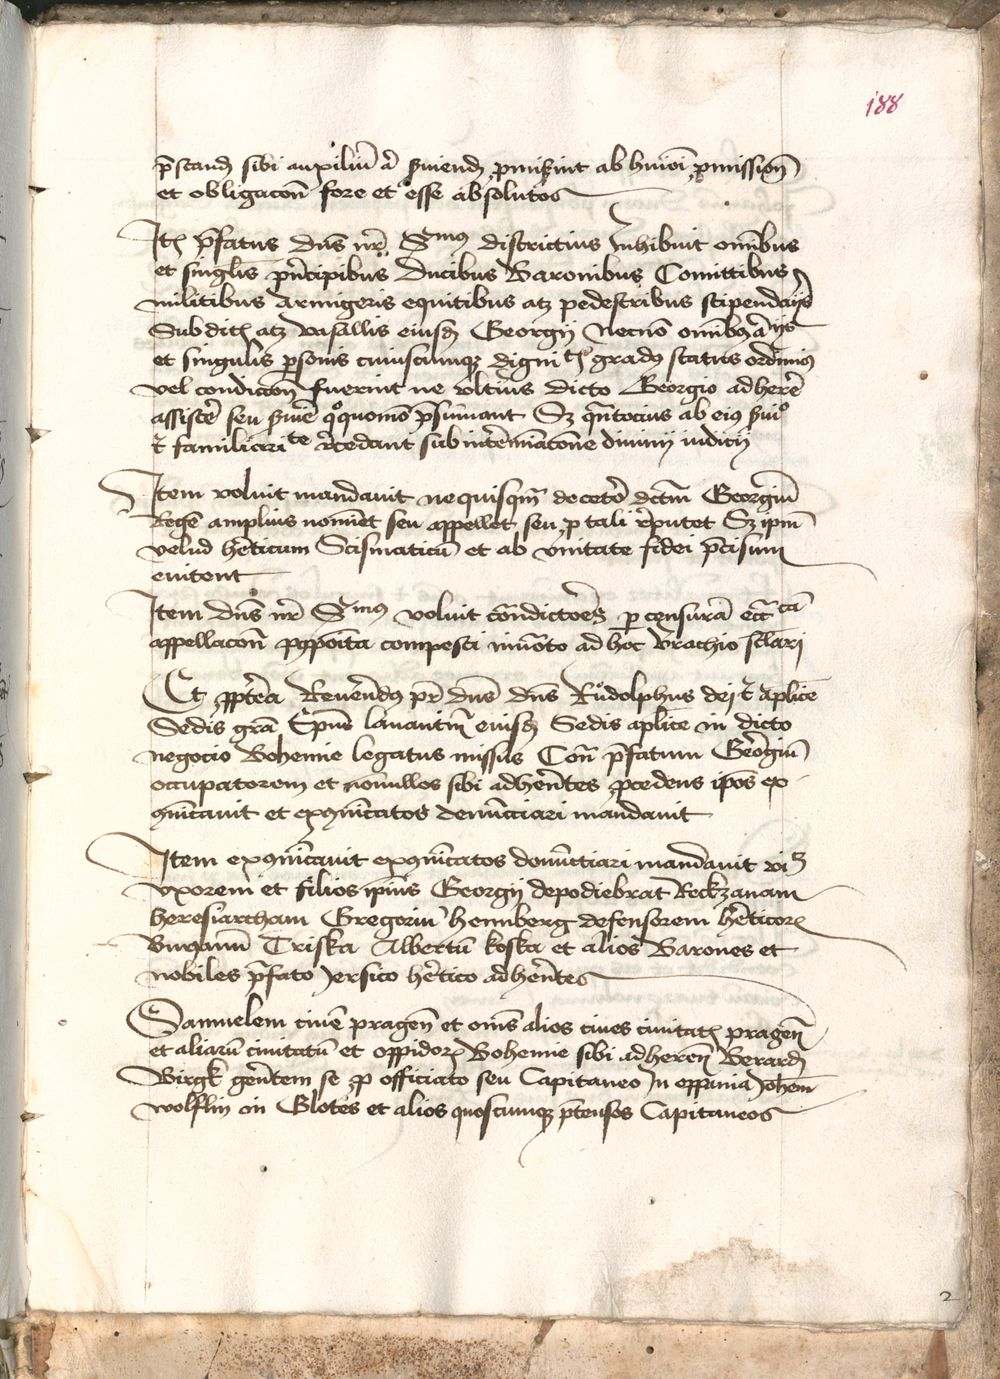 188
p̄stand̄ sibi auxiliū a ẜuiend̄ ꝓmiẜint ab hm̄oi ꝓmission̄
et obligacōn fore et esse absolutos
Itē p̄fatus dn̄s nr̄ Sᵐᵘˢ districtius Inhibuit om̄ibus
et singlis pn̄cipibus Ducibus Baronibus Comittibus
militibus armigeris equitibus atꝫ pedestribus stipendarijs
Subditꝭ atꝫ vasallis eiusd̄ Georgij Necnō om̄ibꝫ alijs
et singulis ꝑsonis cuiuscumqꝫ dignitꝭ gradꝰ status ordinis
vel condicōn fuerint ne vltius dicto Georgio adherē
assistē seu ẜuire qͦquomō p̄sumant Sꝫ qn̄tocius ab eiꝰ ẜuiᵒ
et familiaritᵗᵉ r̄cedant sub int̄emīacōne diuinj iudicij
Item voluit mandauit nequisqm̄ decetō dc̄tm Georgiū
Regē amplius noīet seu appellet seu ꝓ tali r̄putet Sꝫ ipm̄
velud hēticum Scismaticū et ab vnitate fidei p̄cisum
euitent
Item dn̄s nr̄ Sᵐᵘˢ voluit cōtradictoēs ꝑ censurā ecc̄ᶜᵃ
appellacōn pꝯpoīta compesci inuoto ad hoc brachio sc̄lari
Et ꝓpt̄ea Reuerendꝰ pr̄ dn̄s dn̄s Růdolphus dej et aplice
Sedis grā Ep̄us lauantin̄ eiusd̄ Sedis aplice in dicto
negocio Bohemie legatus missus Con̄ p̄fatum Georgiū
occupatorem et nonnullos sibi adherētes ꝓcedens ipōs ex
ꝯmūicauit et exꝯmūicatos denūciari mandauit
Item exꝯmūicauit exꝯmūicatos denūctiari mandauit viꝫ
vxorem et filios ipīus Georgij depodiebrat Reckzanam
heresiarcham Gregoriū heimberg defensorem hēticorꝫ
Burianū Triska Albertū koska et alios Barones et
nobiles p̄fato Jersico hētico adherētes
Samuelem ciuē pragen̄ et om̄s alios ciues ciuitatꝭ pragen̄
et aliarū ciuitatū et oppidorꝫ Bohemie sibi adheren̄ Berard̄
Birgk gerētem se ꝓ officiato seu Capitaneo In Johem̄
wolflin in Glotes et alios quoscumqꝫ p̄tensos Capitaneos
2